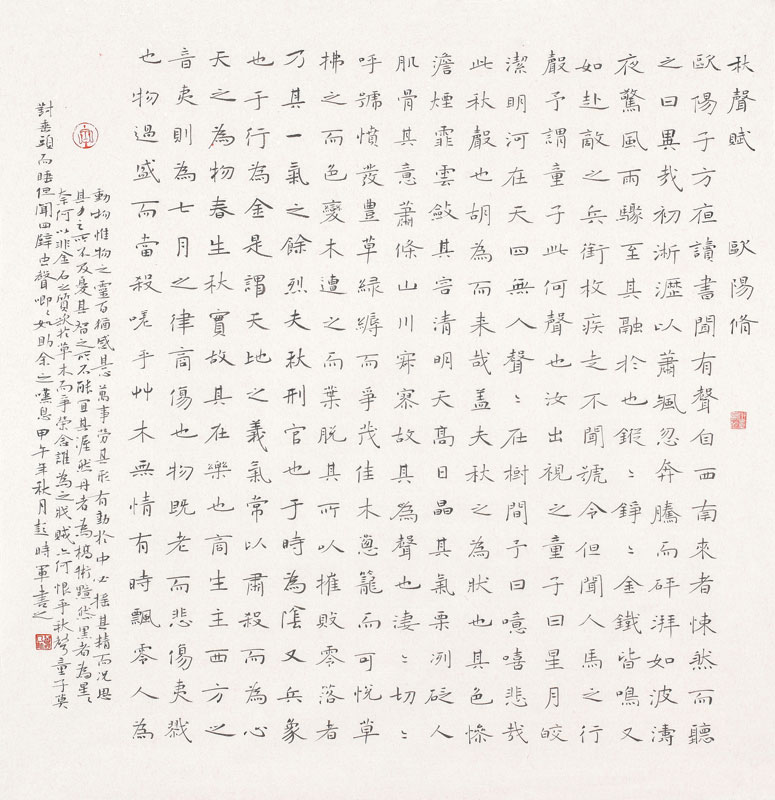 秋聲賦 歐陽脩
歐陽子方夜讀書聞有聲自西南來者悚然而聽
之曰異哉初淅瀝以蕭颯忽奔騰而砰湃如波濤
夜驚風雨驟至其融於也鏦〻錚〻金鐵皆鳴又
如赴敵之兵銜枚疾走不聞號令但聞人馬之行
聲予謂童子此何聲也汝出視之童子曰星月皎
潔明河在天四無人聲〻在樹間予曰噫嘻悲哉
此秋聲也胡為而来哉盖夫秋之為狀也其色慘
澹煙霏雲斂其容清明天高日晶其氣栗冽砭人
肌骨其意蕭條山川寂寥故其為聲也淒〻切〻
呼號憤發豊草綠縟而爭茂佳木蔥籠而可悅草
拂之而色變木遭之而葉脫其所以摧敗零落者
乃其一氣之餘烈夫秋刑官也于時為陰又兵象
也于行為金是謂天地之義氣常以肅殺而為心
天之為物春生秋實故其在樂也商生主西方之
音夷則為七月之律商傷也物既老而悲傷夷戮
也物過盛而當殺嗟乎艸木無情有時飄零人為
動物惟物之靈百感萬事勞其形有動於中必搖其精而況思
其力之所不及憂其智之所不能宜其渥然丹者為槁黟然黑者為星〻
奈何以非金石之質欲於草木而爭榮念誰為之戕賊亦何恨乎秋聲童子莫
對垂頭而睡但聞四壁虫聲唧〻如助余之嘆息甲午年秋月彭時軍書之